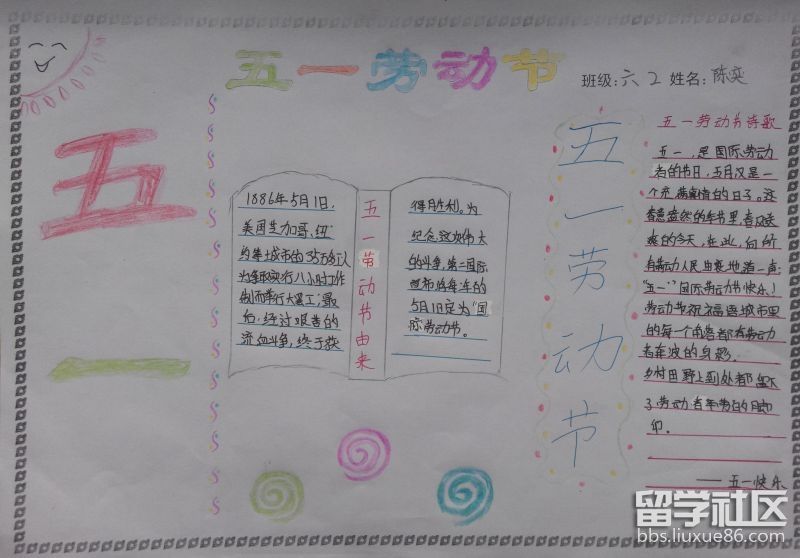 五一劳动节
班级:六2 姓名:陈奕
五一
1886年5月1日,
美国芝加哥、纽
约等城市的35万名工人
为争取实行八小时工作
制而举行大罢工,最
后,经过艰苦的
流血斗争,终于获
五一劳动节由来
得胜利。为
纪念这次伟大
的斗争,第二国际
宣布将每年的
5月1日定为“国
际劳动节。
五一劳动节
五一劳动节诗歌
五一,是国际劳动
者的节日,五月又是一
个充满激情的日子。这
春意盎然的季节里,春风送
爽的今天,在此,向所
有劳动人民由衷地道一声:
“五一”国际劳动节快乐!
劳动节祝福遍城市里
的每一个角落都有劳动
者奔波的身影,
乡村田野上到处都留下
了劳动者辛劳的脚
印。
——五一快乐
留学社区
bbs.liuxue86.com